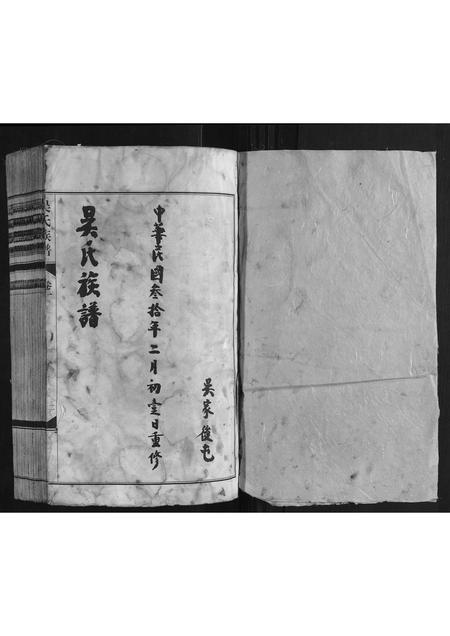 吳家後屯
中華民國叁拾年二月初壹日重修
吳氏族譜
吳氏族譜 卷一